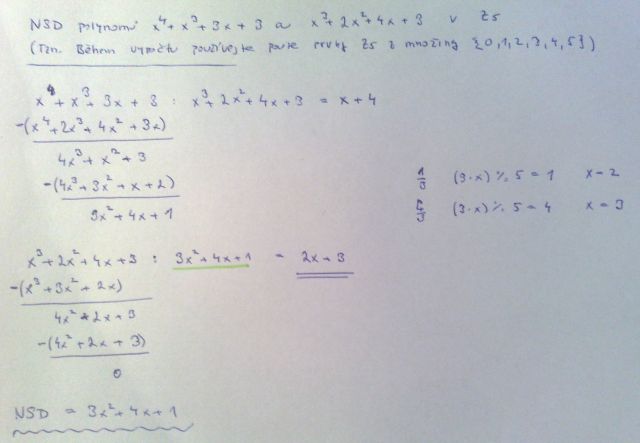 NSD polynomů x⁴+x³+3x+3 a x³+2x²+4x+3 v Z5
(Tzn. Během výpočtu používejte pouze prvky Z5 z množiny {0,1,2,3,4,5})
x⁴+x³+3x+3 : x³+2x²+4x+3 = x+4
-(x⁴+2x³+4x²+3x)
4x³+x²+3
-(4x³+3x²+x+2)
3x²+4x+1
1/3 (3·x) % 5 = 1 x=2
4/3 (3·x) % 5 = 4 x=3
x³+2x²+4x+3 : 3x²+4x+1 = 2x+3
-(x³+3x²+2x)
4x²+2x+3
-(4x²+2x+3)
0
NSD = 3x²+4x+1